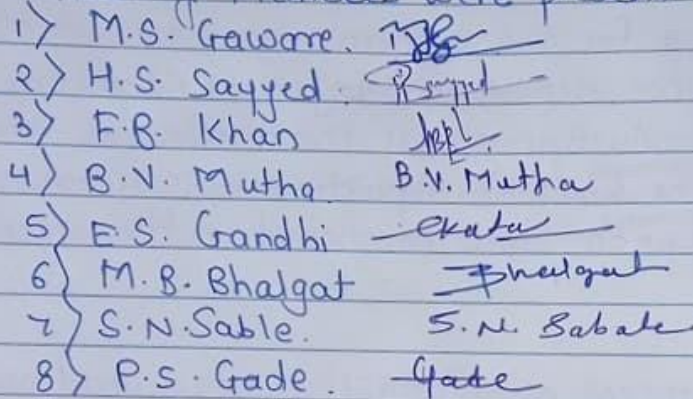 1) M.S. Gaware.
2) H.S. Sayyed. Rsayyed
3) F.B. Khan
4) B.V. Mutha B.V. Mutha
5) E.S. Gandhi ekata
6) M.B. Bhalgat Bhalgat
7) S.N. Sable. S.N. Sabale
8) P.S. Gade. Gade